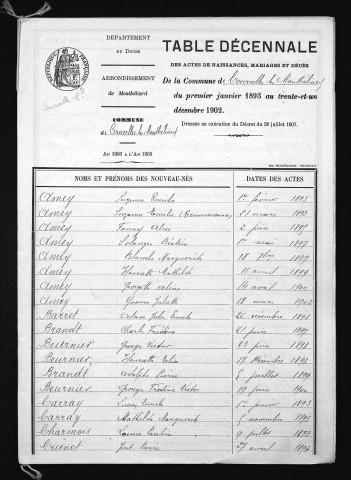 DÉPARTEMENT
du Doubs
ARRONDISSEMENT
de Montbéliard
COMMUNE
de Courcelles les Montbéliard
AN 1893 A L'AN 1903
TABLE DÉCENNALE
DES ACTES DE NAISSANCES, MARIAGES ET DÉCÈS
De la Commune de Courcelles les Montbéliard
du premier janvier 1893 au trente-et-un
décembre 1902.
Dressée en exécution du Décret du 20 juillet 1807.
NOMS ET PRÉNOMS DES NOUVEAU-NÉS DATES DES ACTES
Amey Suzanne Emilie 1er février 1893
Amey Suzanne Emilie (Reconnaissance) 21 mars 1893
Amey Fanny Alice 2 juin 1895
Amey Solanges Béatrice 1er mai 1897
Amey Blanche Marguerite 18
Amey Henriette Mathilde 11 avril 1899
Amey Georgette 14 avril 1900
Amey Yvonne Juliette 18 mars 1902
Barret Jules Emile 26 décembre 1893
Brandt Charles Frédéric 21 juin
Beurnier Georges Victor 23 juin 1898
Beurnier Henriette 17 décembre 1898
Brandt Adolphe Pierre 5 juillet 1899
Beurnier Georges Frédéric Victor 19 juin 1900
Carray Lucien Emile 1er janvier 1893
Carray Mathilde Marguerite novembre
Charmois Louise Pauline 9 juillet 1893
Cuénot Pierre 27 avril